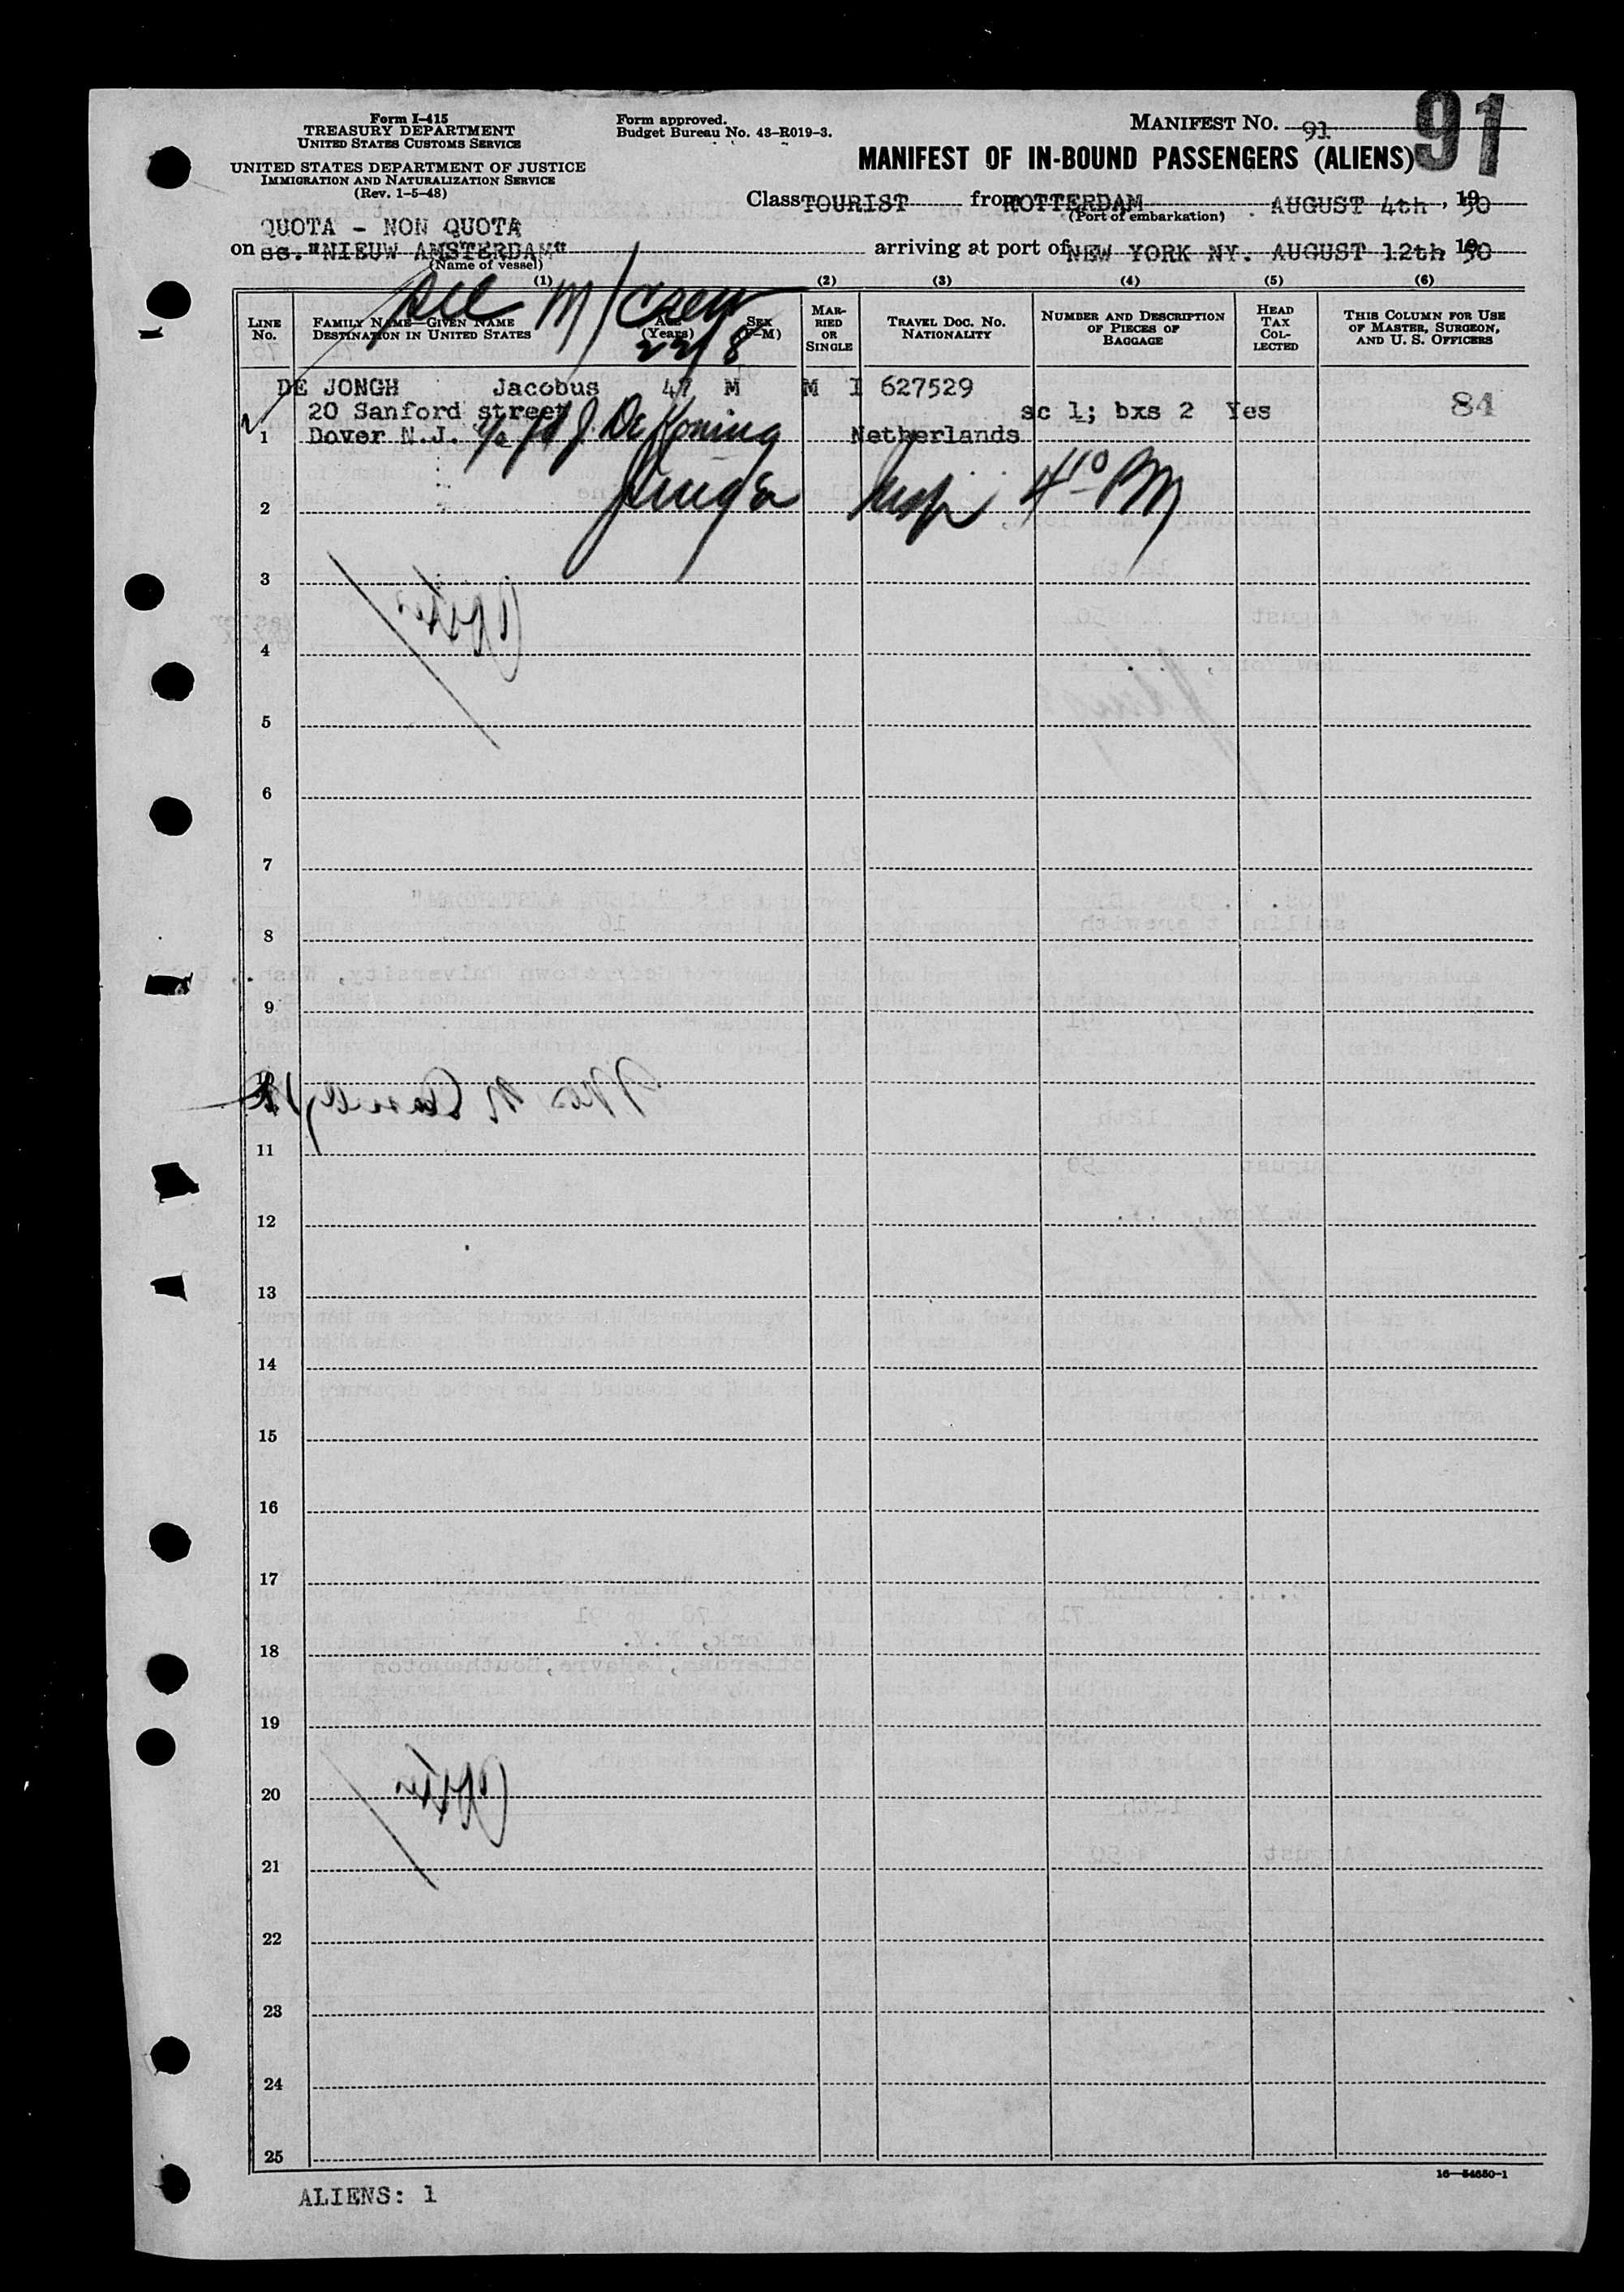 Form I-415
TREASURY DEPARTMENT
UNITED STATES CUSTOMS SERVICE
UNITED STATES DEPARTMENT OF JUSTICE
IMMIGRATION AND NATURALIZATION SERVICE
(Rev. 1-5-48)
Form approved.
Budget Bureau No. 43-R019-3.
MANIFEST NO. 91
91
MANIFEST OF IN-BOUND PASSENGERS (ALIENS)
Class TOURIST from ROTTERDAM AUGUST 4th, 1950
(Port of embarkation)
QUOTA - NON QUOTA
on ss. "NIEUW AMSTERDAM" arriving at port of NEW YORK NY. AUGUST 12th 1950
(Name of vessel)
(1) (2) (3) (4) (5) (6)
LINE NO.
FAMILY NAME—GIVEN NAME
DESTINATION IN UNITED STATES
AGE (Years)
SEX (F-M)
MARRIED OR SINGLE
TRAVEL DOC. NO.
NATIONALITY
NUMBER AND DESCRIPTION OF PIECES OF BAGGAGE
HEAD TAX COLLECTED
THIS COLUMN FOR USE OF MASTER, SURGEON, AND U. S. OFFICERS
22/8
DE JONGH Jacobus 47 M M I 627529
20 Sanford street sc 1; bxs 2 Yes 84
1 Dover N.J. J. De Koning Netherlands
2 Insp 4 10 PM
3
4
5
6
7
8
9
10
11
12
13
14
15
16
17
18
19
20
21
22
23
24
25
16—54650-1
ALIENS: 1